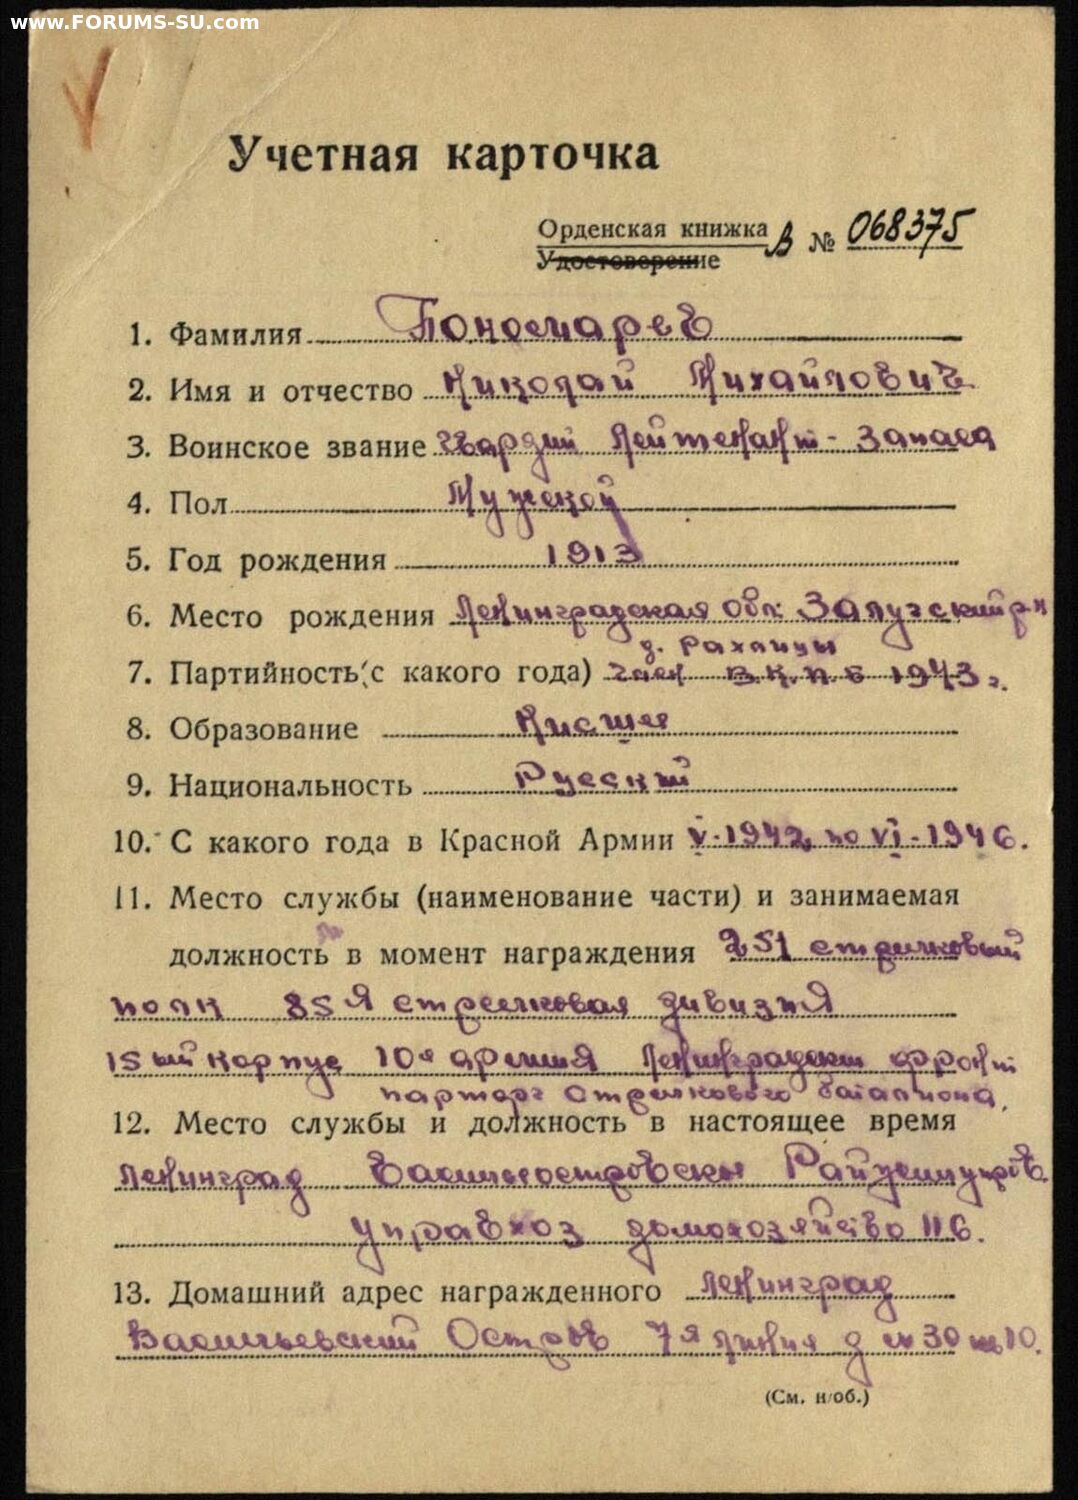 www.FORUMS-SU.com
Учетная карточка
Орденская книжка В № 068375
Удостоверение
1. Фамилия Пономарев
2. Имя и отчество Николай Михайлович
3. Воинское звание гвардии лейтенант - запаса
4. Пол Мужской
5. Год рождения 1913
6. Место рождения Ленинградская обл. Залучский р-н
д. Рахлицы
7. Партийность (с какого года) член В.К.П.б 1943 г.
8. Образование Низшее
9. Национальность Русский
10. С какого года в Красной Армии V-1942 по VI-1946.
11. Место службы (наименование части) и занимаемая
должность в момент награждения 251 стрелковый
полк 85 я стрелковая дивизия
15 ый корпус 10 я армия Ленинградский фронт
парторг стрелкового батальона.
12. Место службы и должность в настоящее время
Ленинград Василеостровский
управхоз домохозяйство 116.
13. Домашний адрес награжденного Ленинград
Васильевский Остров 7 я линия д 30 10.
(См. н/об.)